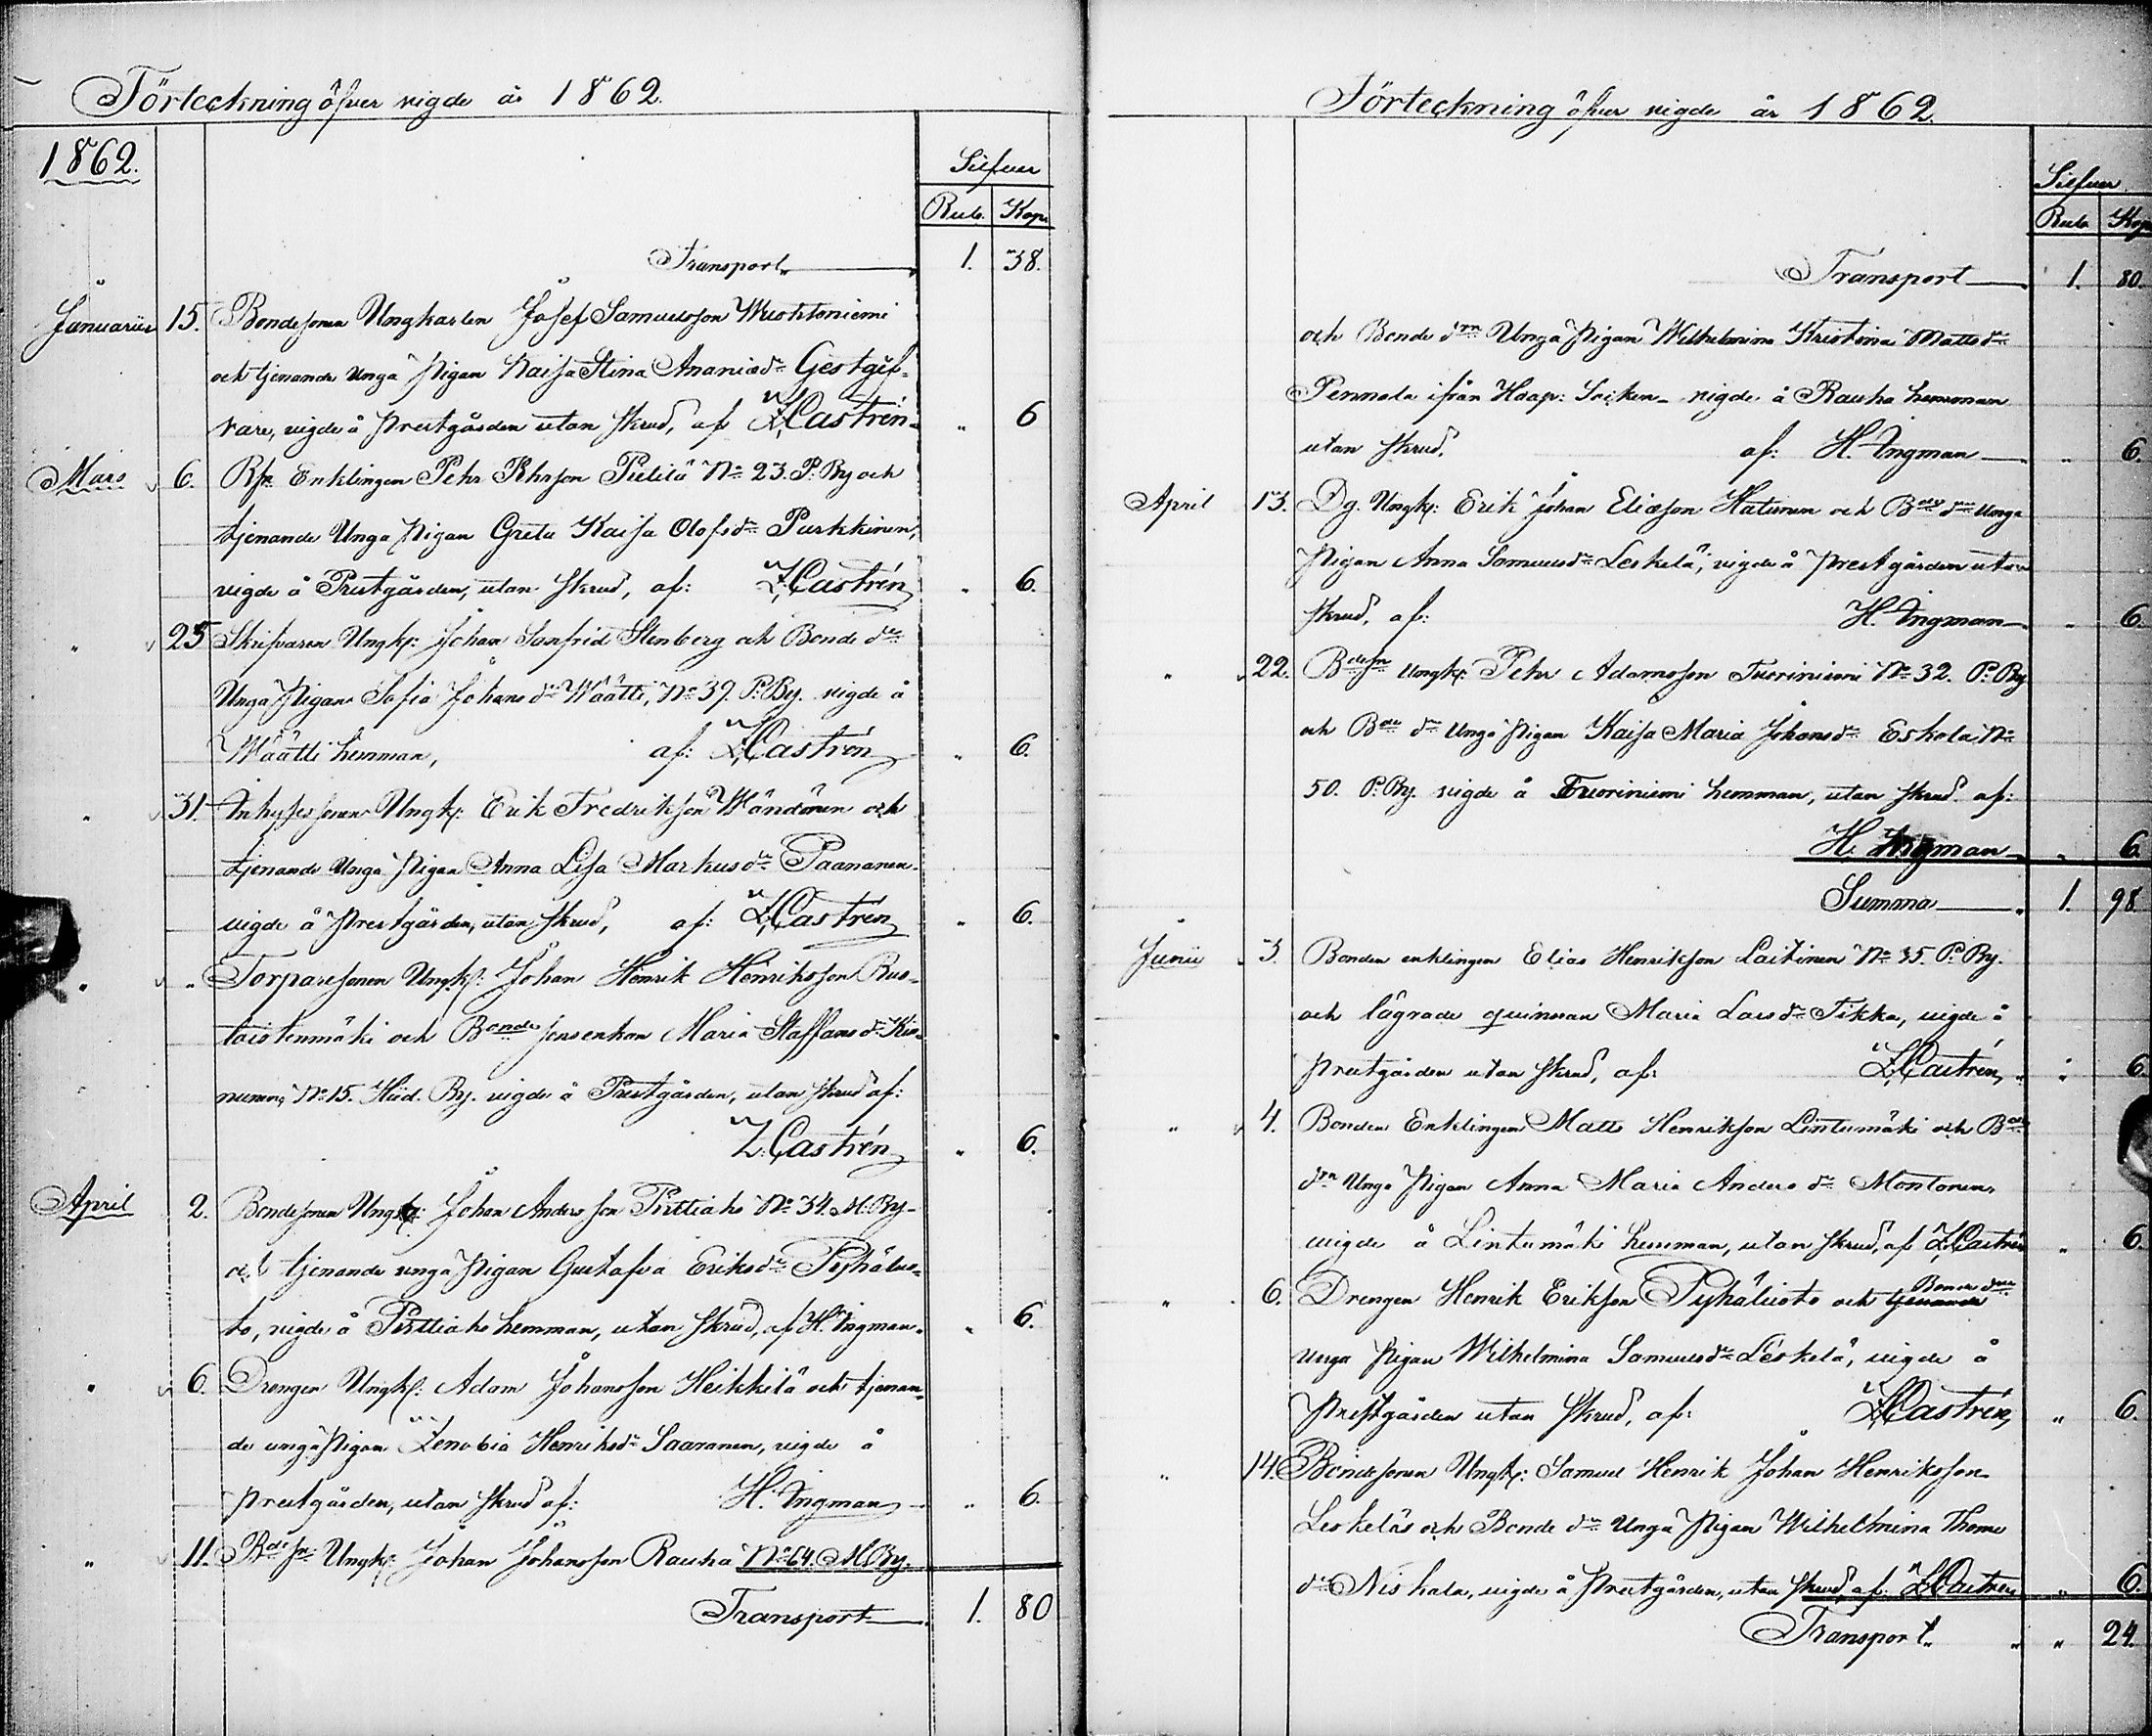 Förteckning öfver vigde år 1862.
1862.
Silfver
Rub. Kop.
Transport 1. 38.
Januarius 15. Bondesonen Ungkarlen Josef Samuelsson Wuoktoniemi
och tjenande Unga Pigan Kaisa Stina Ananiædr Gestgif-
vare, vigde å Prestgården utan skrud, af Z. Castrén " 6
Mars 6. Bfr Enklingen Pehr Pehrson Pielilä No 23. P. By och
tjenande Unga Pigan Greta Kaisa Olofsdr Purkkinen,
vigde å Prestgården, utan skrud, af: Z. Castrén " 6.
" 25 Skrifvaren Ungk: Johan Sanfrid Stenberg och Bonde dr
Unga Pigan Sofia Johansdr Wäätti, No 39. P. By. vigde å
Wäätti hemman, af: Z. Castrén " 6.
" 31. Inhysessonen Ungk: Erik Fredrikson Wändönen och
tjenande Unga Pigan Anna Lisa Markusdr Paananen
vigde å Prestgården, utan skrud, af: Z. Castrén " 6.
" " Torparesonen Ungk: Johan Henrik Henriksson Ruo-
toistenmäki och Bonde Maria Staffansdr Kin-
nunen, No 15. Hiid. By. vigde å Prestgården, utan skrud af:
Z. Castrén " 6.
April 2. Bondesonen Ungk: Johan Andersson Pirttiaho No 34. M. By
och tjenande unga Pigan Gustafva Eriksdr Pyhäluo-
to, vigde å Pirttiaho hemman, utan skrud, af H. Ingman " 6.
" 6. Drengen Ungk: Adam Johansson Heikkilä och tjenan-
de unga Pigan Zenobia Henriksdr Saaranen, vigde å
Prestgården, utan skrud af: H. Ingman " 6.
" 11. Bdesn Ungk: Johan Johansson Rauha No 64. M. By.
Transport 1. 80
Förteckning öfver vigde år 1862.
Silfver
Rub. Kop
Transport 1. 80.
och Bonde drn Unga Pigan Wilhelmina Kristina Mattsdr
Pennala ifrån Haap: Socken vigde å Rauha hemman
utan skrud, af: H. Ingman " 6.
April 13. Dg. Ungk: Erik Johan Eliasson Hatunen och Bde drn Unga
Pigan Anna Samuelsdr Leskelä, vigde å Prestgården utan
skrud, af: H. Ingman " 6.
" 22. Bdesn Ungk: Pehr Adamsson Tuoriniemi No 32. P. By
och Bde dr Unga Pigan Kaisa Maria Johansdr Eskola No
50. P. By. vigde å Tuoriniemi hemman, utan skrud af:
H. Ingman " 6
Summa 1. 98
Junii 3. Bonden enklingen Elias Henrikson Laitinen No 35. P. By.
och lägrade quinnan Maria Larsdr Tikka, vigde å
Prestgården utan skrud, af: Z. Castrén " 6.
" 4. Bonden Enklingen Matts Henrikson Lintumäki och Bde
drn Unga Pigan Anna Maria Anders dr Montonen,
vigde å Lintumäki hemman, utan skrud, af Z. Castrén " 6.
" 6. Drengen Henrik Erikson Pyhäluoto och tjenande Bonde drn
Unga Pigan Wilhelmina Samuelsdr Leskelä, vigde å
Prestgården utan skrud, af: Z. Castrén, " 6.
" 14. Bondesonen Ungk: Samuel Henrik Johan Henriksson
Leskeläs och Bonde dr Unga Pigan Wilhelmina Thoms
dr Niskala, vigde å Prestgården, utan skrud, af: Z. Castrén " 6.
Transport. " " 24.